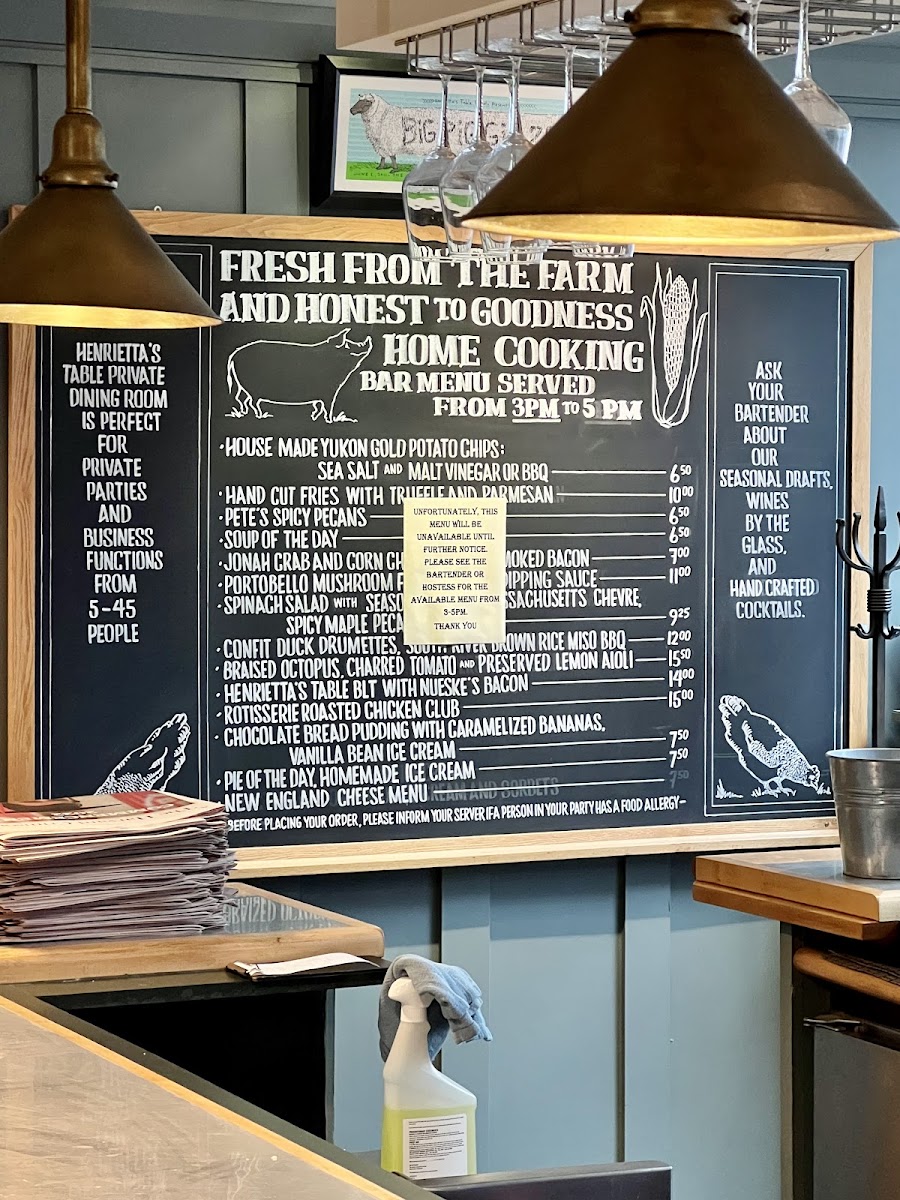 BIG PIG GIG
FRESH FROM THE FARM
AND HONEST TO GOODNESS
HOME COOKING
BAR MENU SERVED
FROM 3PM TO 5 PM
HENRIETTA'S
TABLE PRIVATE
DINING ROOM
IS PERFECT
FOR
PRIVATE
PARTIES
AND
BUSINESS
FUNCTIONS
FROM
5-45
PEOPLE
· HOUSE MADE YUKON GOLD POTATO CHIPS:
SEA SALT AND MALT VINEGAR OR BBQ 6 50
· HAND CUT FRIES WITH TRUFFLE AND PARMESAN 10 00
· PETE'S SPICY PECANS 6 50
· SOUP OF THE DAY 6 50
· JONAH CRAB AND CORN CH MOKED BACON 7 00
· PORTOBELLO MUSHROOM F DIPPING SAUCE 11 00
· SPINACH SALAD WITH SEASO SSACHUSETTS CHEVRE,
SPICY MAPLE PECA 9 25
· CONFIT DUCK DRUMETTES, SOUTH RIVER BROWN RICE MISO BBQ 12 00
· BRAISED OCTOPUS, CHARRED TOMATO AND PRESERVED LEMON AIOLI 15 50
· HENRIETTA'S TABLE BLT WITH NUESKE'S BACON 14 00
· ROTISSERIE ROASTED CHICKEN CLUB 15 00
· CHOCOLATE BREAD PUDDING WITH CARAMELIZED BANANAS,
VANILLA BEAN ICE CREAM 7 50
· PIE OF THE DAY, HOMEMADE ICE CREAM 7 50
· NEW ENGLAND CHEESE MENU REAM AND SORBETS 7 50
BEFORE PLACING YOUR ORDER, PLEASE INFORM YOUR SERVER IF A PERSON IN YOUR PARTY HAS A FOOD ALLERGY-
UNFORTUNATELY, THIS
MENU WILL BE
UNAVAILABLE UNTIL
FURTHER NOTICE.
PLEASE SEE THE
BARTENDER OR
HOSTESS FOR THE
AVAILABLE MENU FROM
3-5PM.
THANK YOU
ASK
YOUR
BARTENDER
ABOUT
OUR
SEASONAL DRAFTS,
WINES
BY THE
GLASS,
AND
HAND CRAFTED
COCKTAILS.